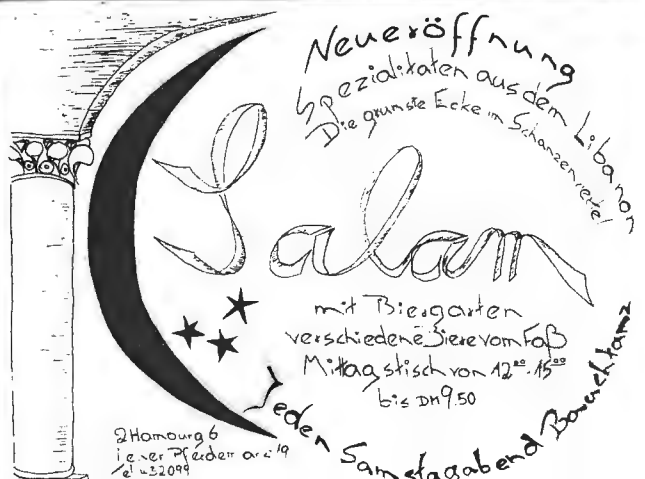 Neueröffnung
Spezialitäten aus dem Libanon
Die grünste Ecke im Schanzenviertel
Salam
mit Biergarten
verschiedene Biere vom Faß
Mittagstisch von 12⁰⁰-15⁰⁰
bis DM 9.50
Jeden Samstagabend Bauchtanz
2 Hamburg 6
19